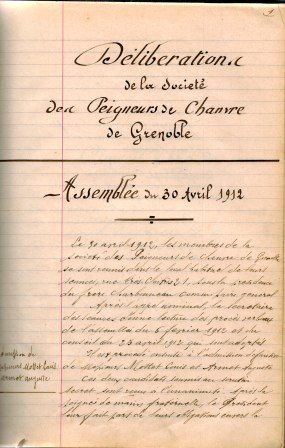 1
Délibérations
de la Société
des Peigneurs de Chanvre
de Grenoble
Assemblée du 30 Avril 1912
Le 30 avril 1912, les membres de la
Société des Peigneurs de Chanvre de Grenoble
se sont réunis dans le local de leurs
séances, rue Très Cloîtres 21, sous la présidence
du frère Charbonneau Commissaire général
Après appel nominal le secrétaire
des séances donne lecture des procès verbaux
de l'assemblée du 6 février 1912 et du
conseil du 26 avril 1912 qui sont adoptés
Il est procédé ensuite à l'admission définitive
de Messieurs Mottet Louis et Armet Auguste
Ces deux candidats soumis au scrutin
secret sont reçus à l'unanimité. Après la
poignée de mains fraternelle, le Président
leur fait part de leurs obligations envers la
Admission de
Mottet Louis
Armet Auguste